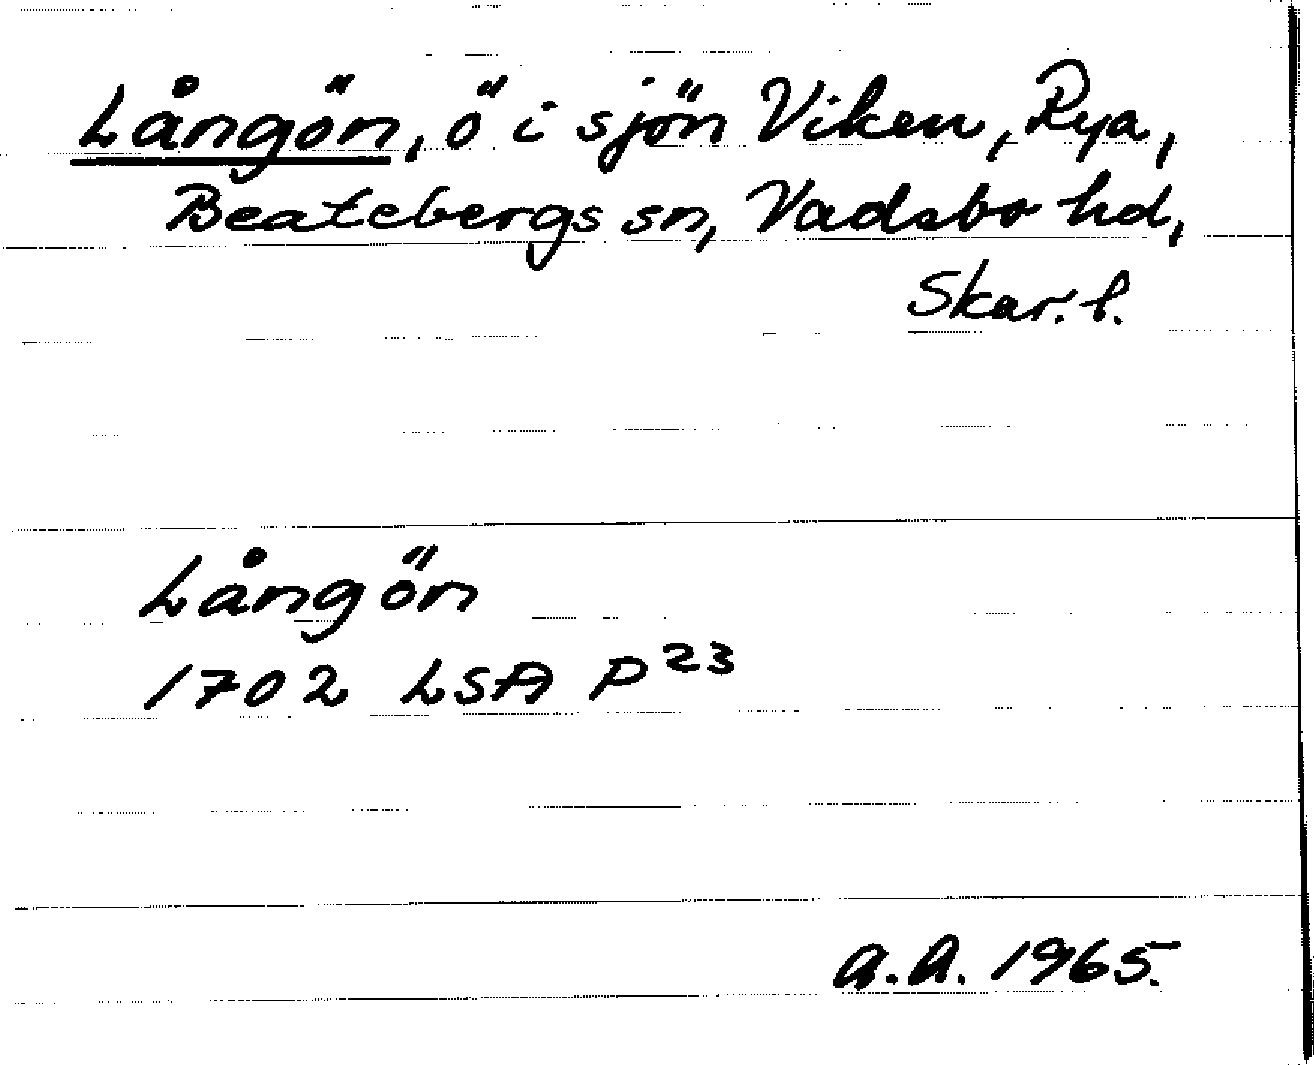 Långön, ö i sjön Viken, Rya,
Beatebergs sn, Vadsbo hd,
Skar. l.
Långön
1702 LSA P23
A.A. 1965.